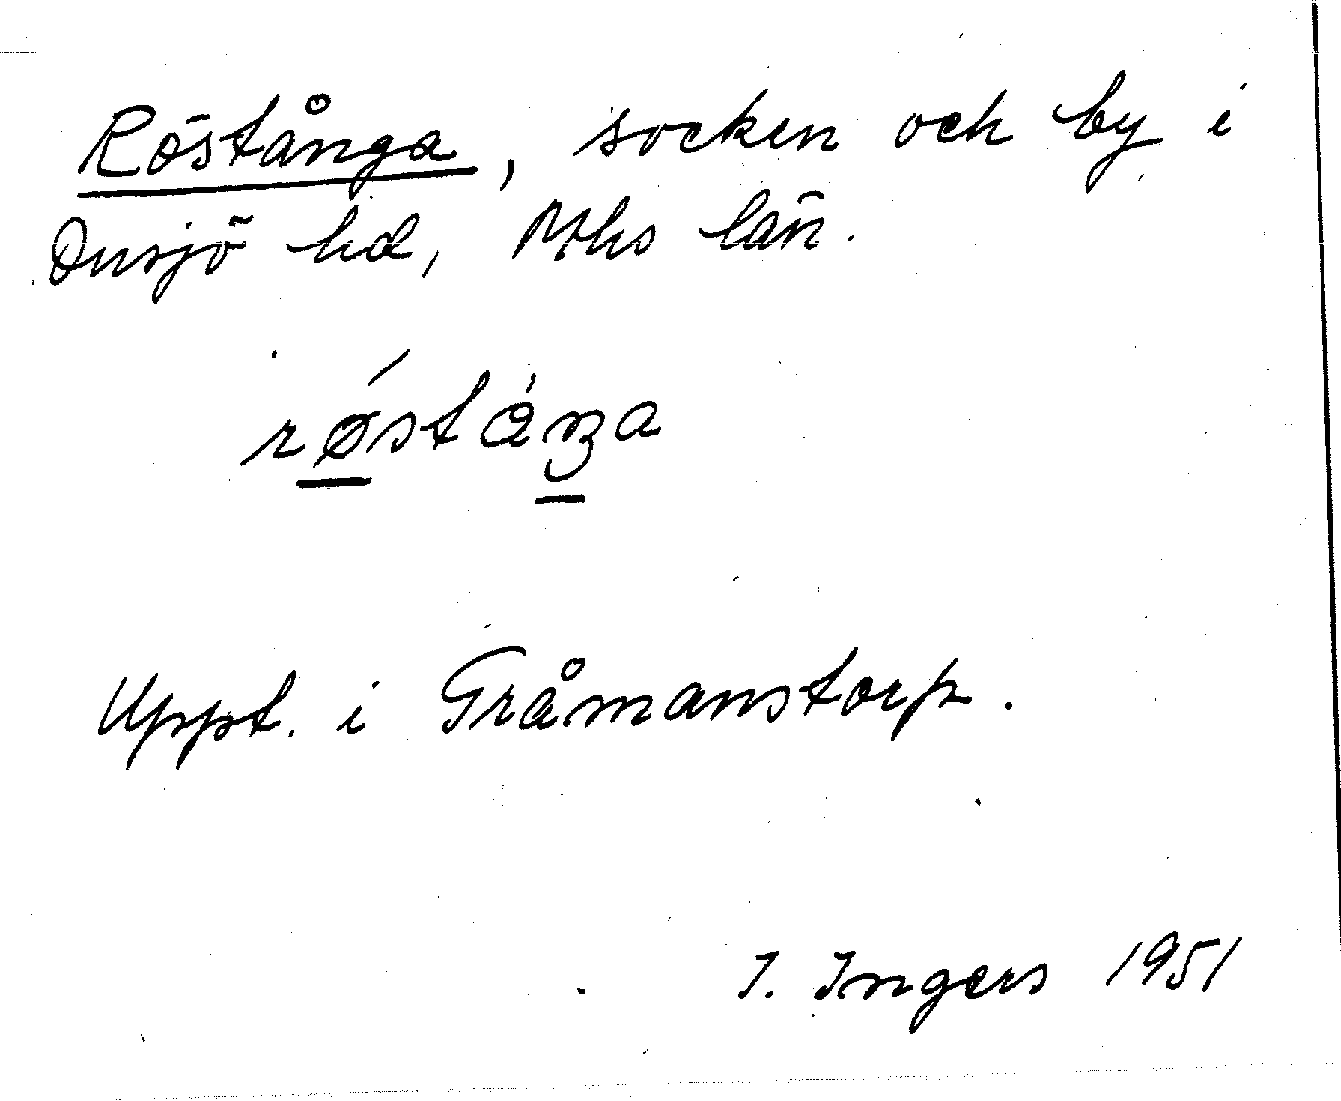 Röstånga, socken och by i
Onsjö hd, Mhs län.
røstáŋa
Uppt. i Gråmanstorp.
I. Ingers 1951